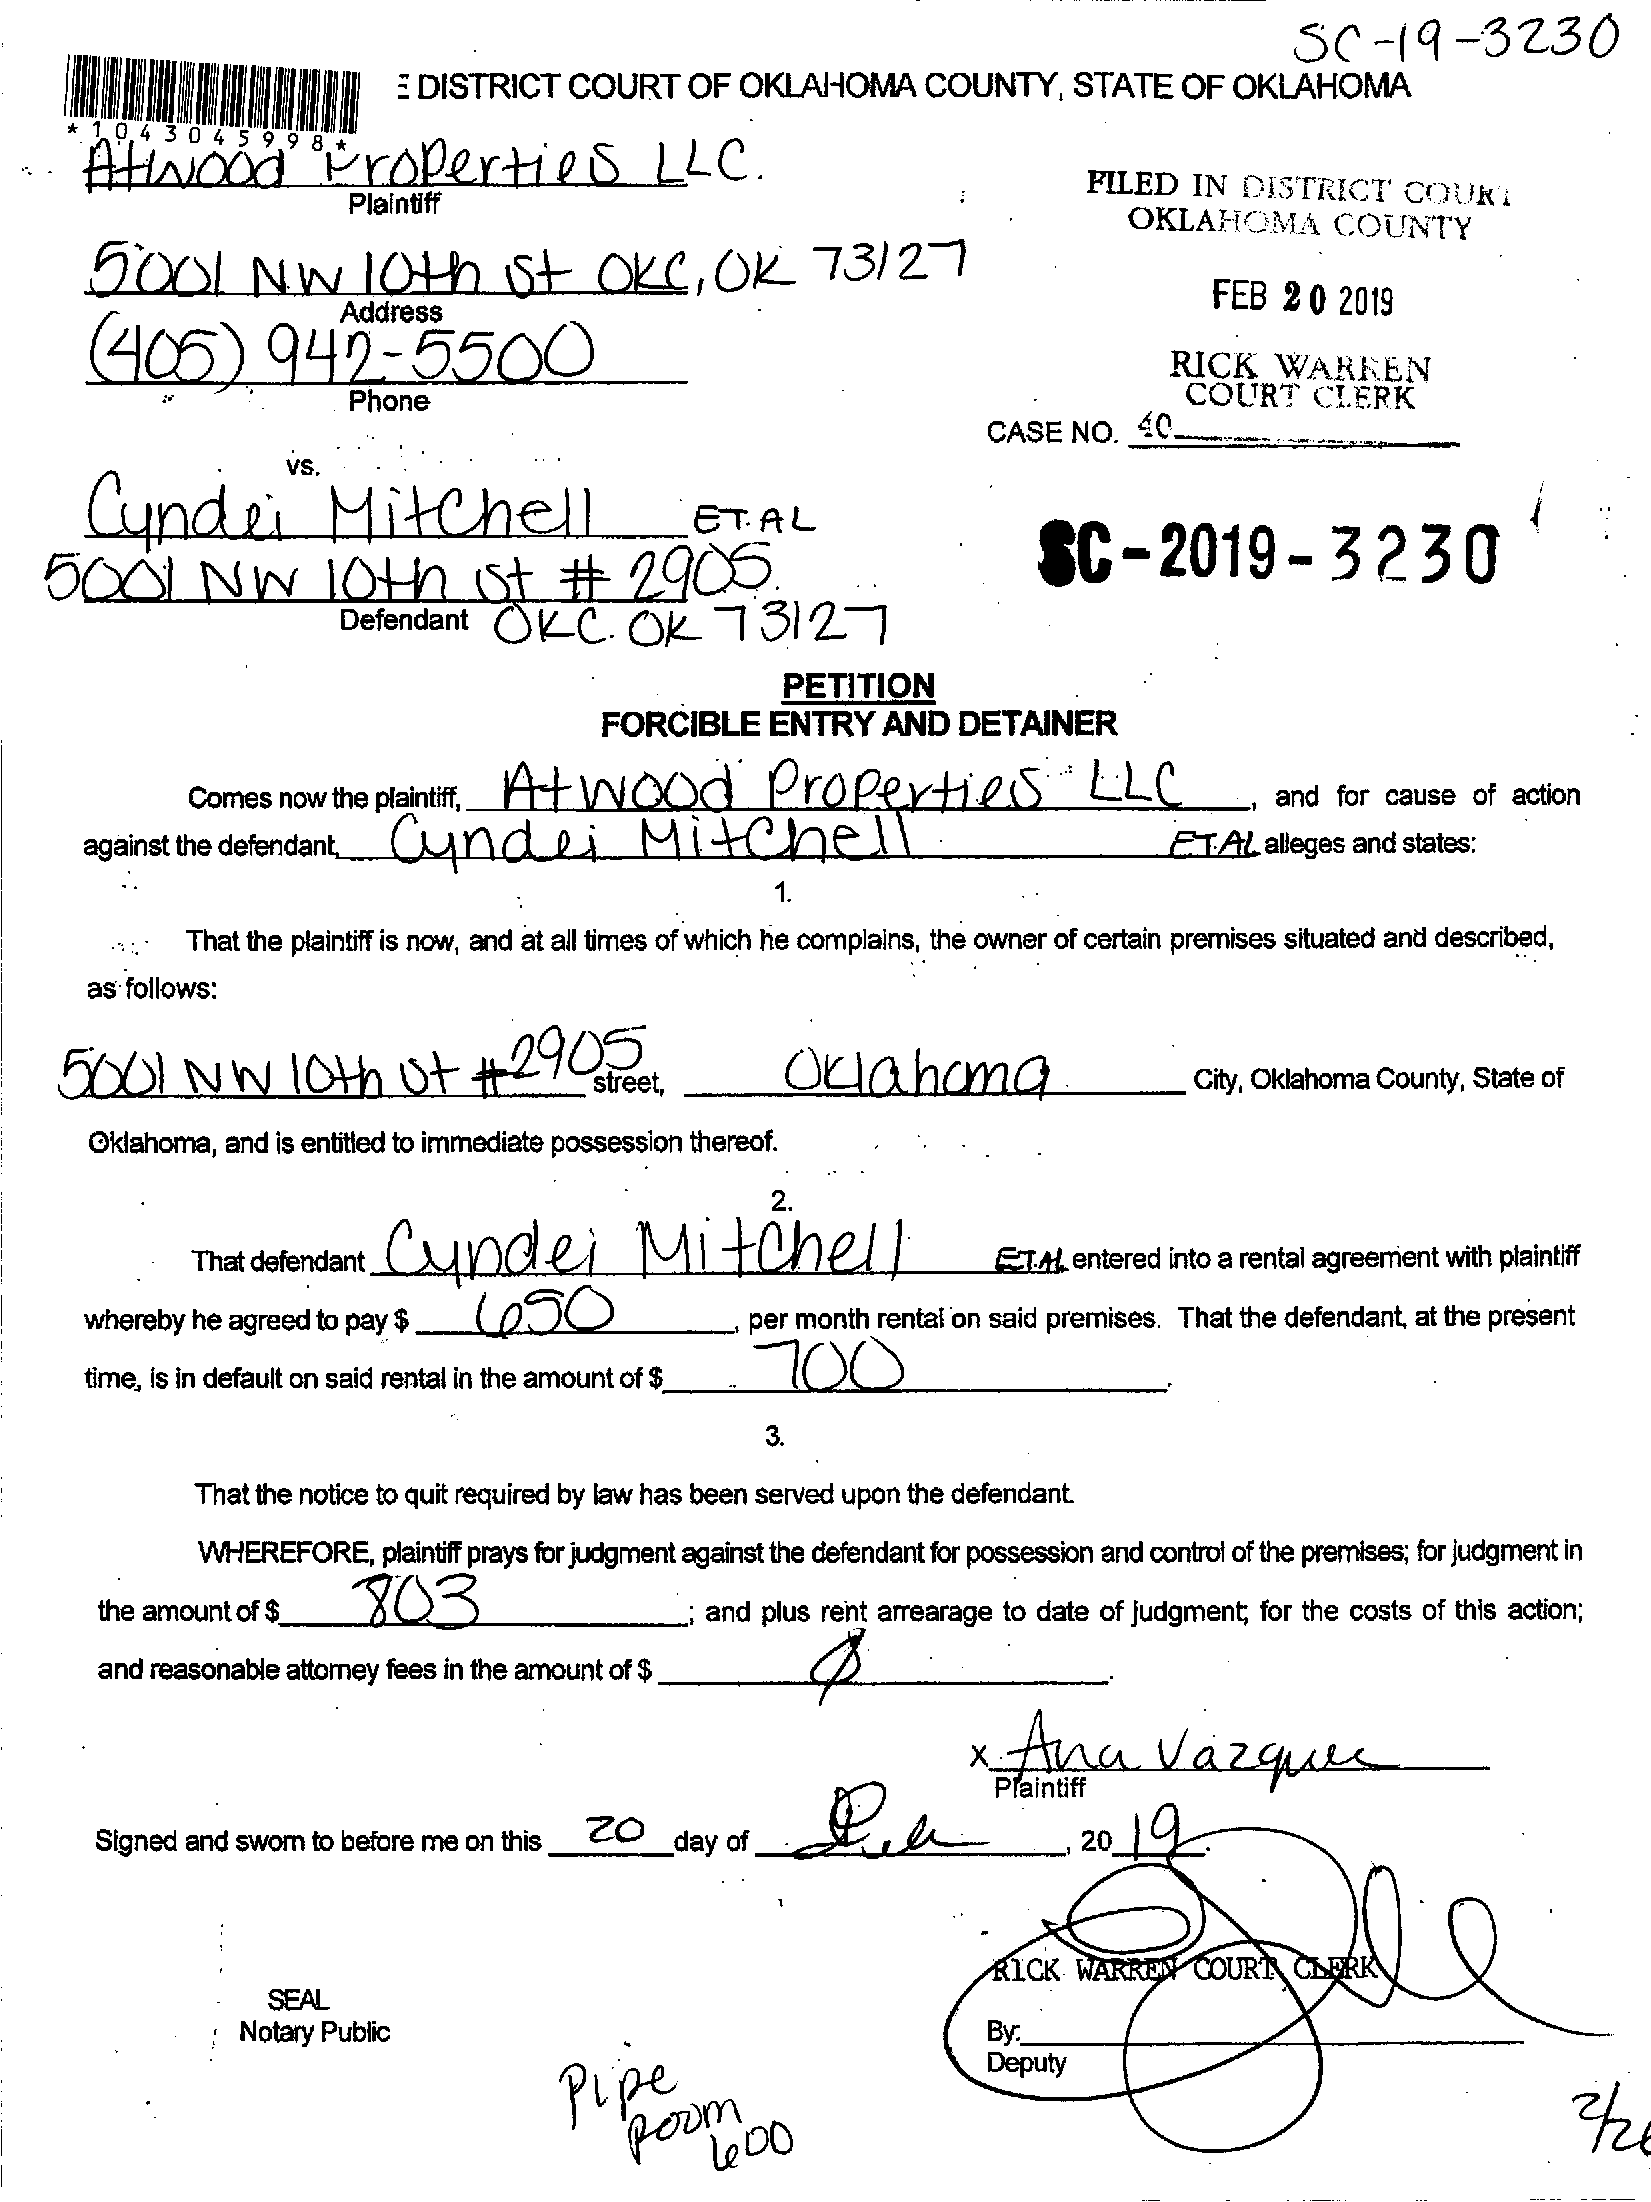 SC-19-3230
E DISTRICT COURT OF OKLAHOMA COUNTY, STATE OF OKLAHOMA
*1043045998*
Atwood Properties LLC.
Plaintiff
FILED IN DISTRICT COURT
OKLAHOMA COUNTY
5001 NW 10th St OKC, OK 73127
Address
FEB 20 2019
(405) 942-5500
Phone
RICK WARREN
COURT CLERK
CASE NO. 40
vs.
Cyndei Mitchell ET.AL
SC-2019-3230
5001 NW 10th St # 2905
Defendant OKC. OK 73127
PETITION
FORCIBLE ENTRY AND DETAINER
Comes now the plaintiff, Atwood Properties LLC, and for cause of action
against the defendant, Cyndei Mitchell ET.AL alleges and states:
1.
That the plaintiff is now, and at all times of which he complains, the owner of certain premises situated and described,
as follows:
5001 NW 10th St #2905 street, Oklahoma City, Oklahoma County, State of
Oklahoma, and is entitled to immediate possession thereof.
2.
That defendant Cyndei Mitchell ET.AL entered into a rental agreement with plaintiff
whereby he agreed to pay $ 650, per month rental on said premises. That the defendant, at the present
time, is in default on said rental in the amount of $ 700.
3.
That the notice to quit required by law has been served upon the defendant.
WHEREFORE, plaintiff prays for judgment against the defendant for possession and control of the premises; for judgment in
the amount of $ 803; and plus rent arrearage to date of judgment; for the costs of this action;
and reasonable attorney fees in the amount of $ Ø.
x Ana Vazquez
Plaintiff
Signed and sworn to before me on this 20 day of Feb, 2019.
RICK WARREN COURT CLERK
SEAL
Notary Public
By:
Deputy
Pipe
Room
600